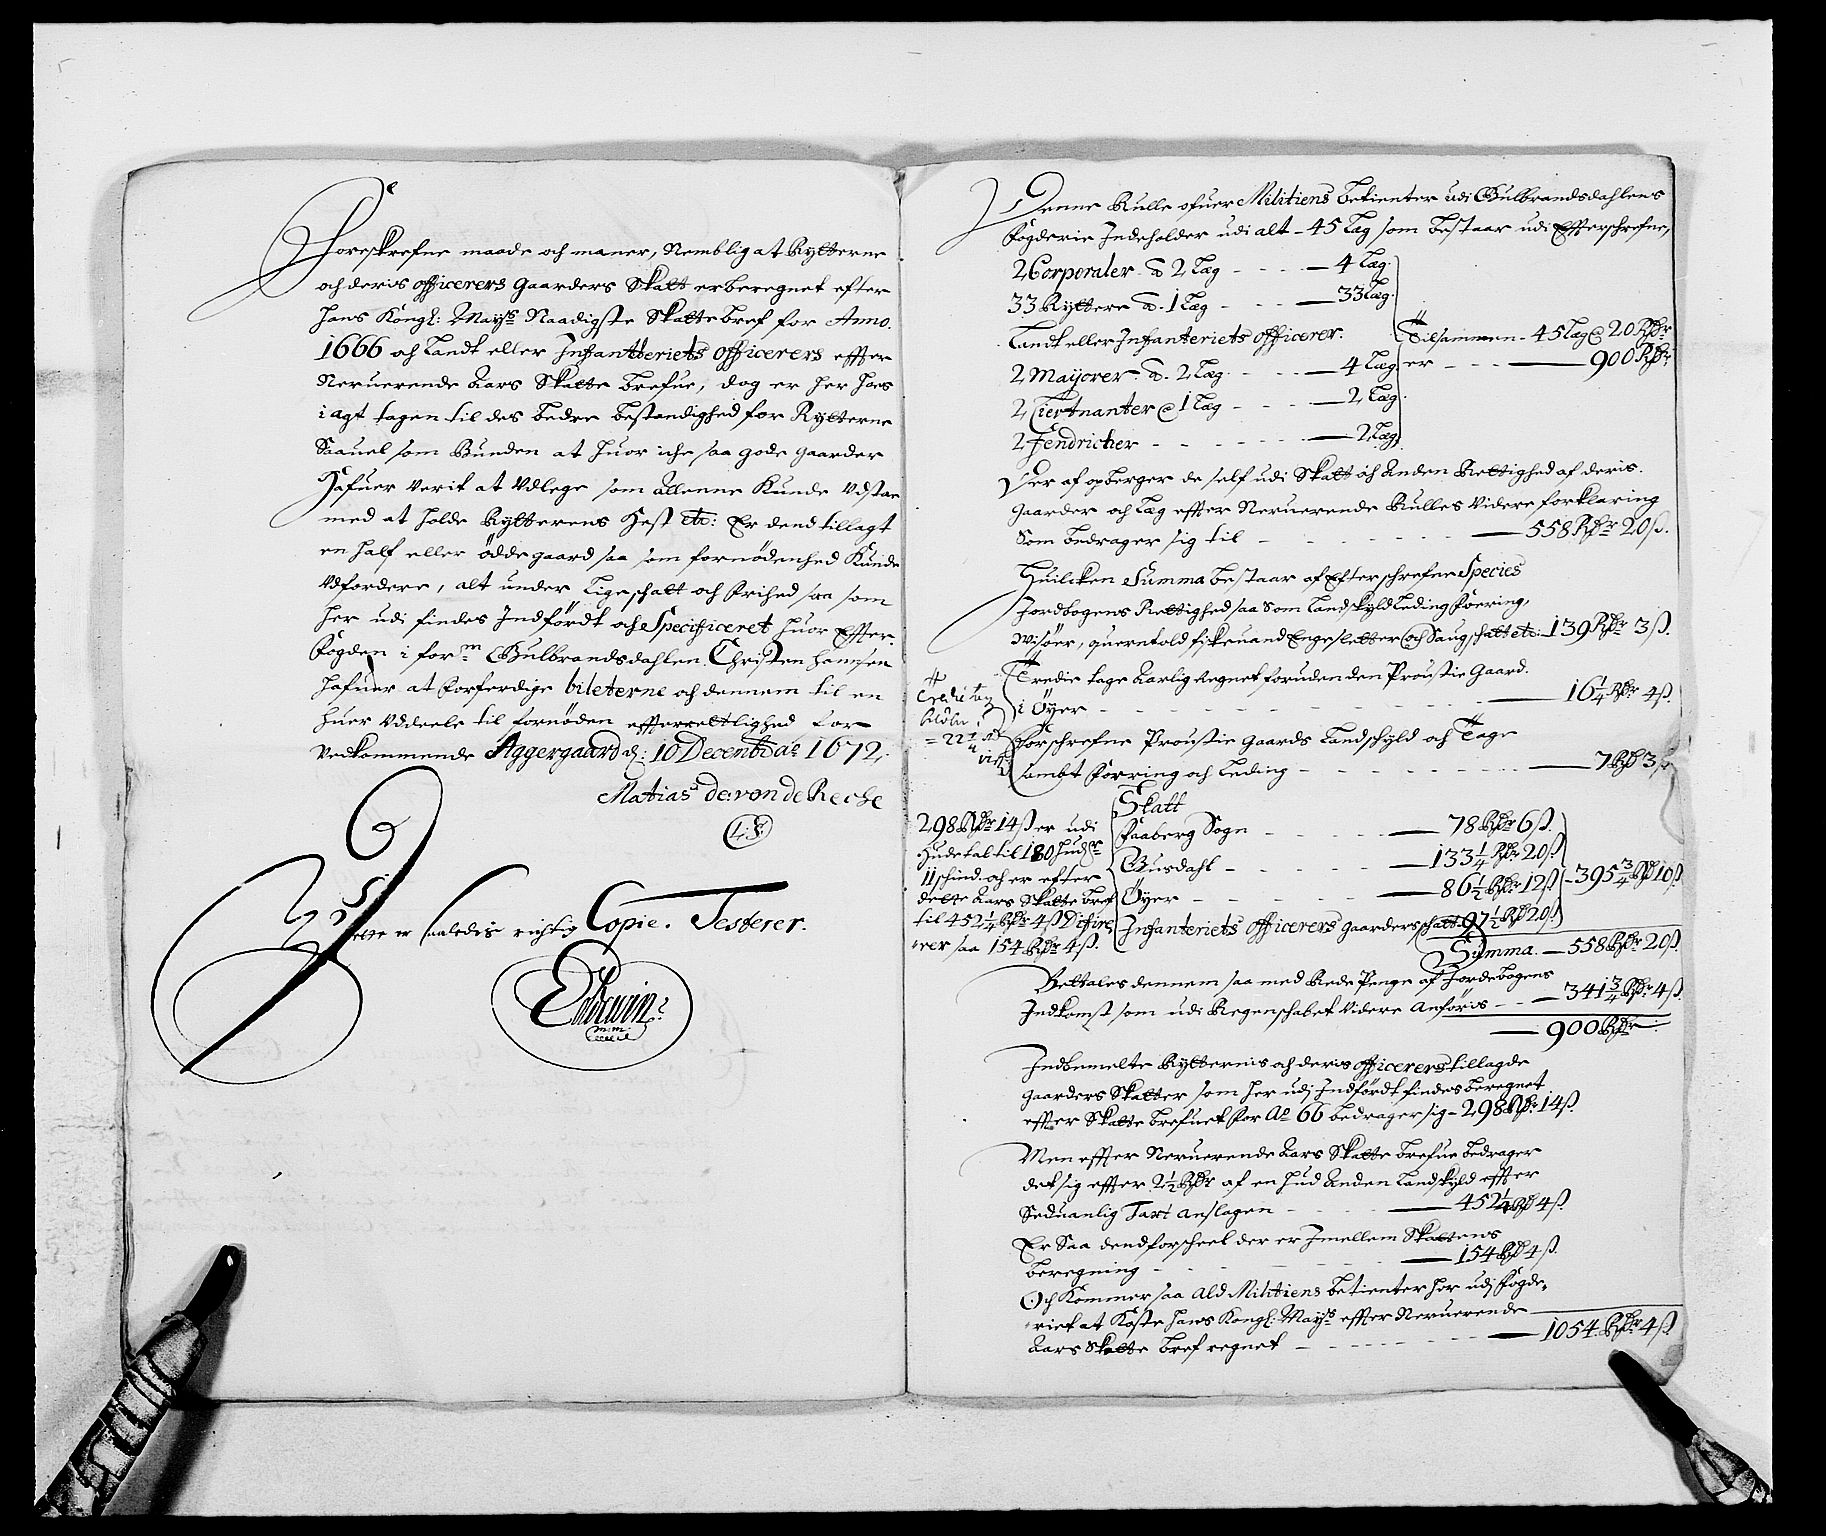 Foreskrefne maade och maner, Nemblig at Rytterne
och deris officerers Gaarders Skatt er beregnet efter
Hans Kongl: Mayts Naadigste Skattebref for Anno.
1666 och Landt eller Infantteriets officerers effter
Neruerende Aars Skatte brefue, dog er her hos
i agt tagen til des bedre bestandighed for Rytterne
Saauel som Bunden at huor iche saa gode gaarder
Hafuer verit at Vdlege som allenne Kunde Vdstae
med at holde Rytterens Hest etc: Er dend tillagt
en half eller ödde gaard saa som fornödenhed Kunde
Vdfordere, alt under Lige schatt och Frihed saa som
her udi findes Indfördt och Specificeret huor Effter
Fogden i form Gulbrandsdahlen Christen Hansen
hafuer at forferdige bileterne och dennem til en
huer Vddeele til fornöden efferrettlighed for
Vedkommende Aggergaard d: 10 Decembr ao 1672,
Matias de: von de Reche
L:S:
Dette er saaledis richtig Copie. Testerer.
Denne Rulle ofuer Militiens betienter udi Gulbrandsdahlens
Fogderie Indeholder udi alt - 45 Læg som bestaar udi Effterschrefne,
2 Corporaler a 2 Læg - - - 4 Læg.
33 Ryttere a. 1 Læg - - - 33 Læg.
Landt eller Infanteriets officerer.
Tilsammen - 45 Læg a 20 Rdr
2 Mayorer. a. 2 Læg - - - 4 Læg
er - - - 900 Rdr
2 Liertnanter a 1 Læg - - - 2 Læg
2 Fendricher - - - 2 Læg
Der af opberger de self udi Skatt och Anden Rettighed af deris
Gaarder och Læg effter Neruerende Rulles Videre forklaring
Som bedrager sig til - - - 558 Rdr 20 ß.
Huilcken Summa bestaar af Efterschrefne Species
Jordbogens Rettighed saa som Landskyld Leding Foering,
Wisöer, querntold fiskeuand Engesletter och Saug schatt etc: 139 Rdr 3 ß.
Tredie tage Aarlig Regnet foruden den Proustie Gaard.
i Öyer - - - 16 1/4 Rdr 4 ß
Forschrefne Proustie Gaards Landschyld och Tage
sambt Foering och Leding - - - 7 Rd 3 ß
Tredie tag
298 Rdr 14 ß er udi
Hudetal til 180 Huder
11 schind. och er efter
dette Aars Skatte bref
til 452 1/4 Rdr 4 ß Difire
rer saa 154 Rdr 4 ß.
Skatt
Faaberg Sogn - - - 78 Rdr 6 ß.
Gusdahl - - - 133 1/4 Rdr 20 ß
Öyer - - - 86 1/2 Rdr 12 ß - 395 3/4 Rd 10 ß
Infanteriets officerers gaarders schatt 97 1/2 Rd 20 ß
Summa. - 558 Rdr 20 ß.
Bettales dennem saa med Rede Penge af Jordebogens
Indkomst som udi Regenschabet Videre Anföris - - 341 3/4 Rdr 4 ß.
900 Rdr
Indbemelte Rytternis och deris officerers tillagde
gaarders Skatter som her udj Indfördt findes beregnet
effter Skatte brefuet for Ao 66 bedrager sig - 298 Rdr: 14 ß.
Men effter Neruerende Aars Skatte brefue bedrager
det sig effter 2 1/2 Rdr af en hud Anden Landskyld effter
Seduanlig Taxt anslagen - - - 452 1/4 Rd 4 ß
Er Saa dend forscheel der er Imellem Skattens
beregning - - - 154 Rd 4 ß.
Och Kommer saa Ald Militiens betienter her udj Fogde-
riet at Koste Hans Kongl: Mayts effter Neruerende
Aars Skatte bref regnet - - - 1054 Rdr 4 ß